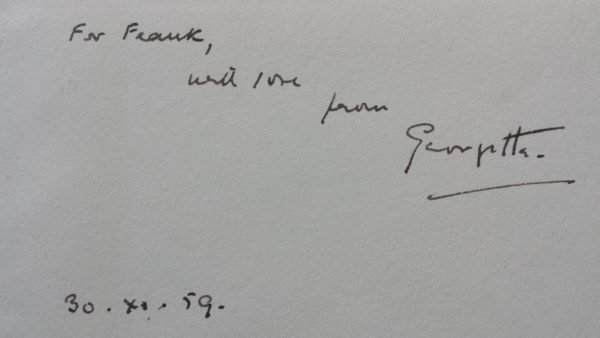 For Frank,
with love
from
Georgette.
30. xi. 59.